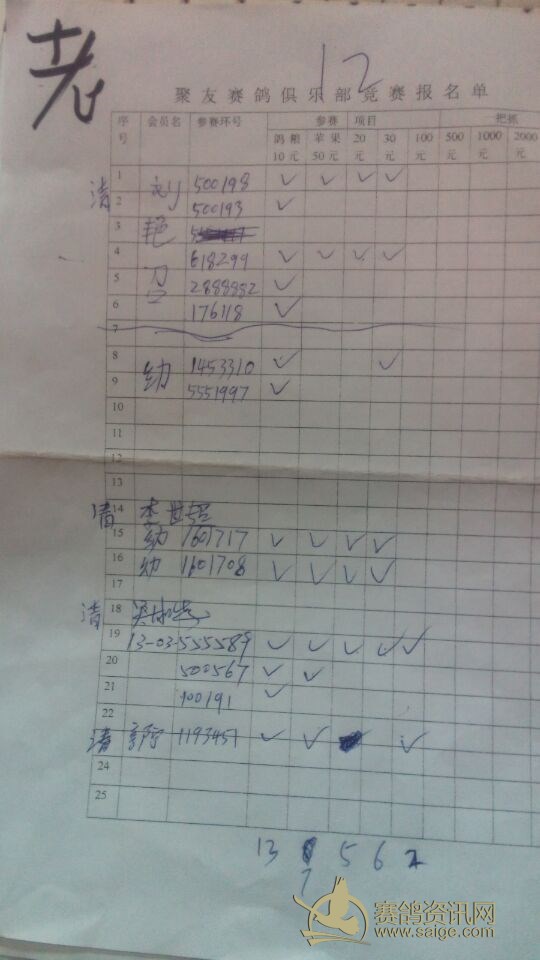 老
12
聚友赛鸽俱乐部竞赛报名单
序号 会员名 参赛环号 参赛 项目 一把抓
鸽粮10元 苹果50元 20元 30元 100元 500元 1000元 2000元
1 清 刘 500198 ✓ ✓ ✓ ✓
2 500193 ✓
3 艳
4 618299 ✓ ✓ ✓ ✓
5 2888882 ✓
6 176118 ✓
7
8 幼 1453310 ✓ ✓
9 5551997 ✓
10
11
12
13
14 清 李世
15 幼 1601717 ✓ ✓ ✓ ✓
16 幼 1601708 ✓ ✓ ✓ ✓
17
18 清
19 13-03-555589 ✓ ✓ ✓ ✓ ✓
20 500567 ✓ ✓
21 100191 ✓
22
清 1193451 ✓ ✓ ✓
24
25
13 5 6 2
7
赛鸽资讯网
www.saige.com